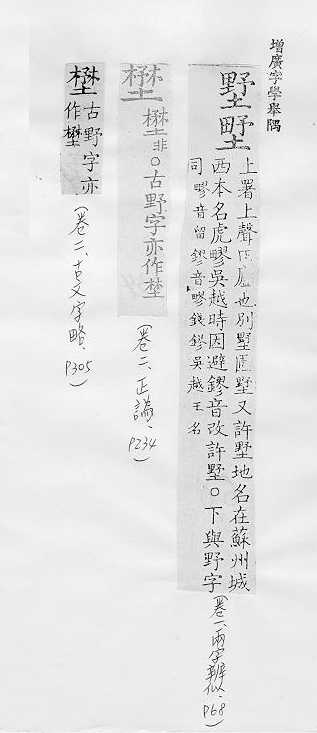 增廣字學舉隅
墅㙒
上署上聲田廬也別墅園墅又許墅地名在蘇州城
西本名虎疁吳越時因避鏐音改許墅○下與野字
司疁音留鏐音疁錢鏐吳越王名
(卷一、兩字辨似、P68)
壄非○古野字亦作埜
(卷二、正譌、P234)
壄
古野字亦
作
(卷二、古文字略、P305)